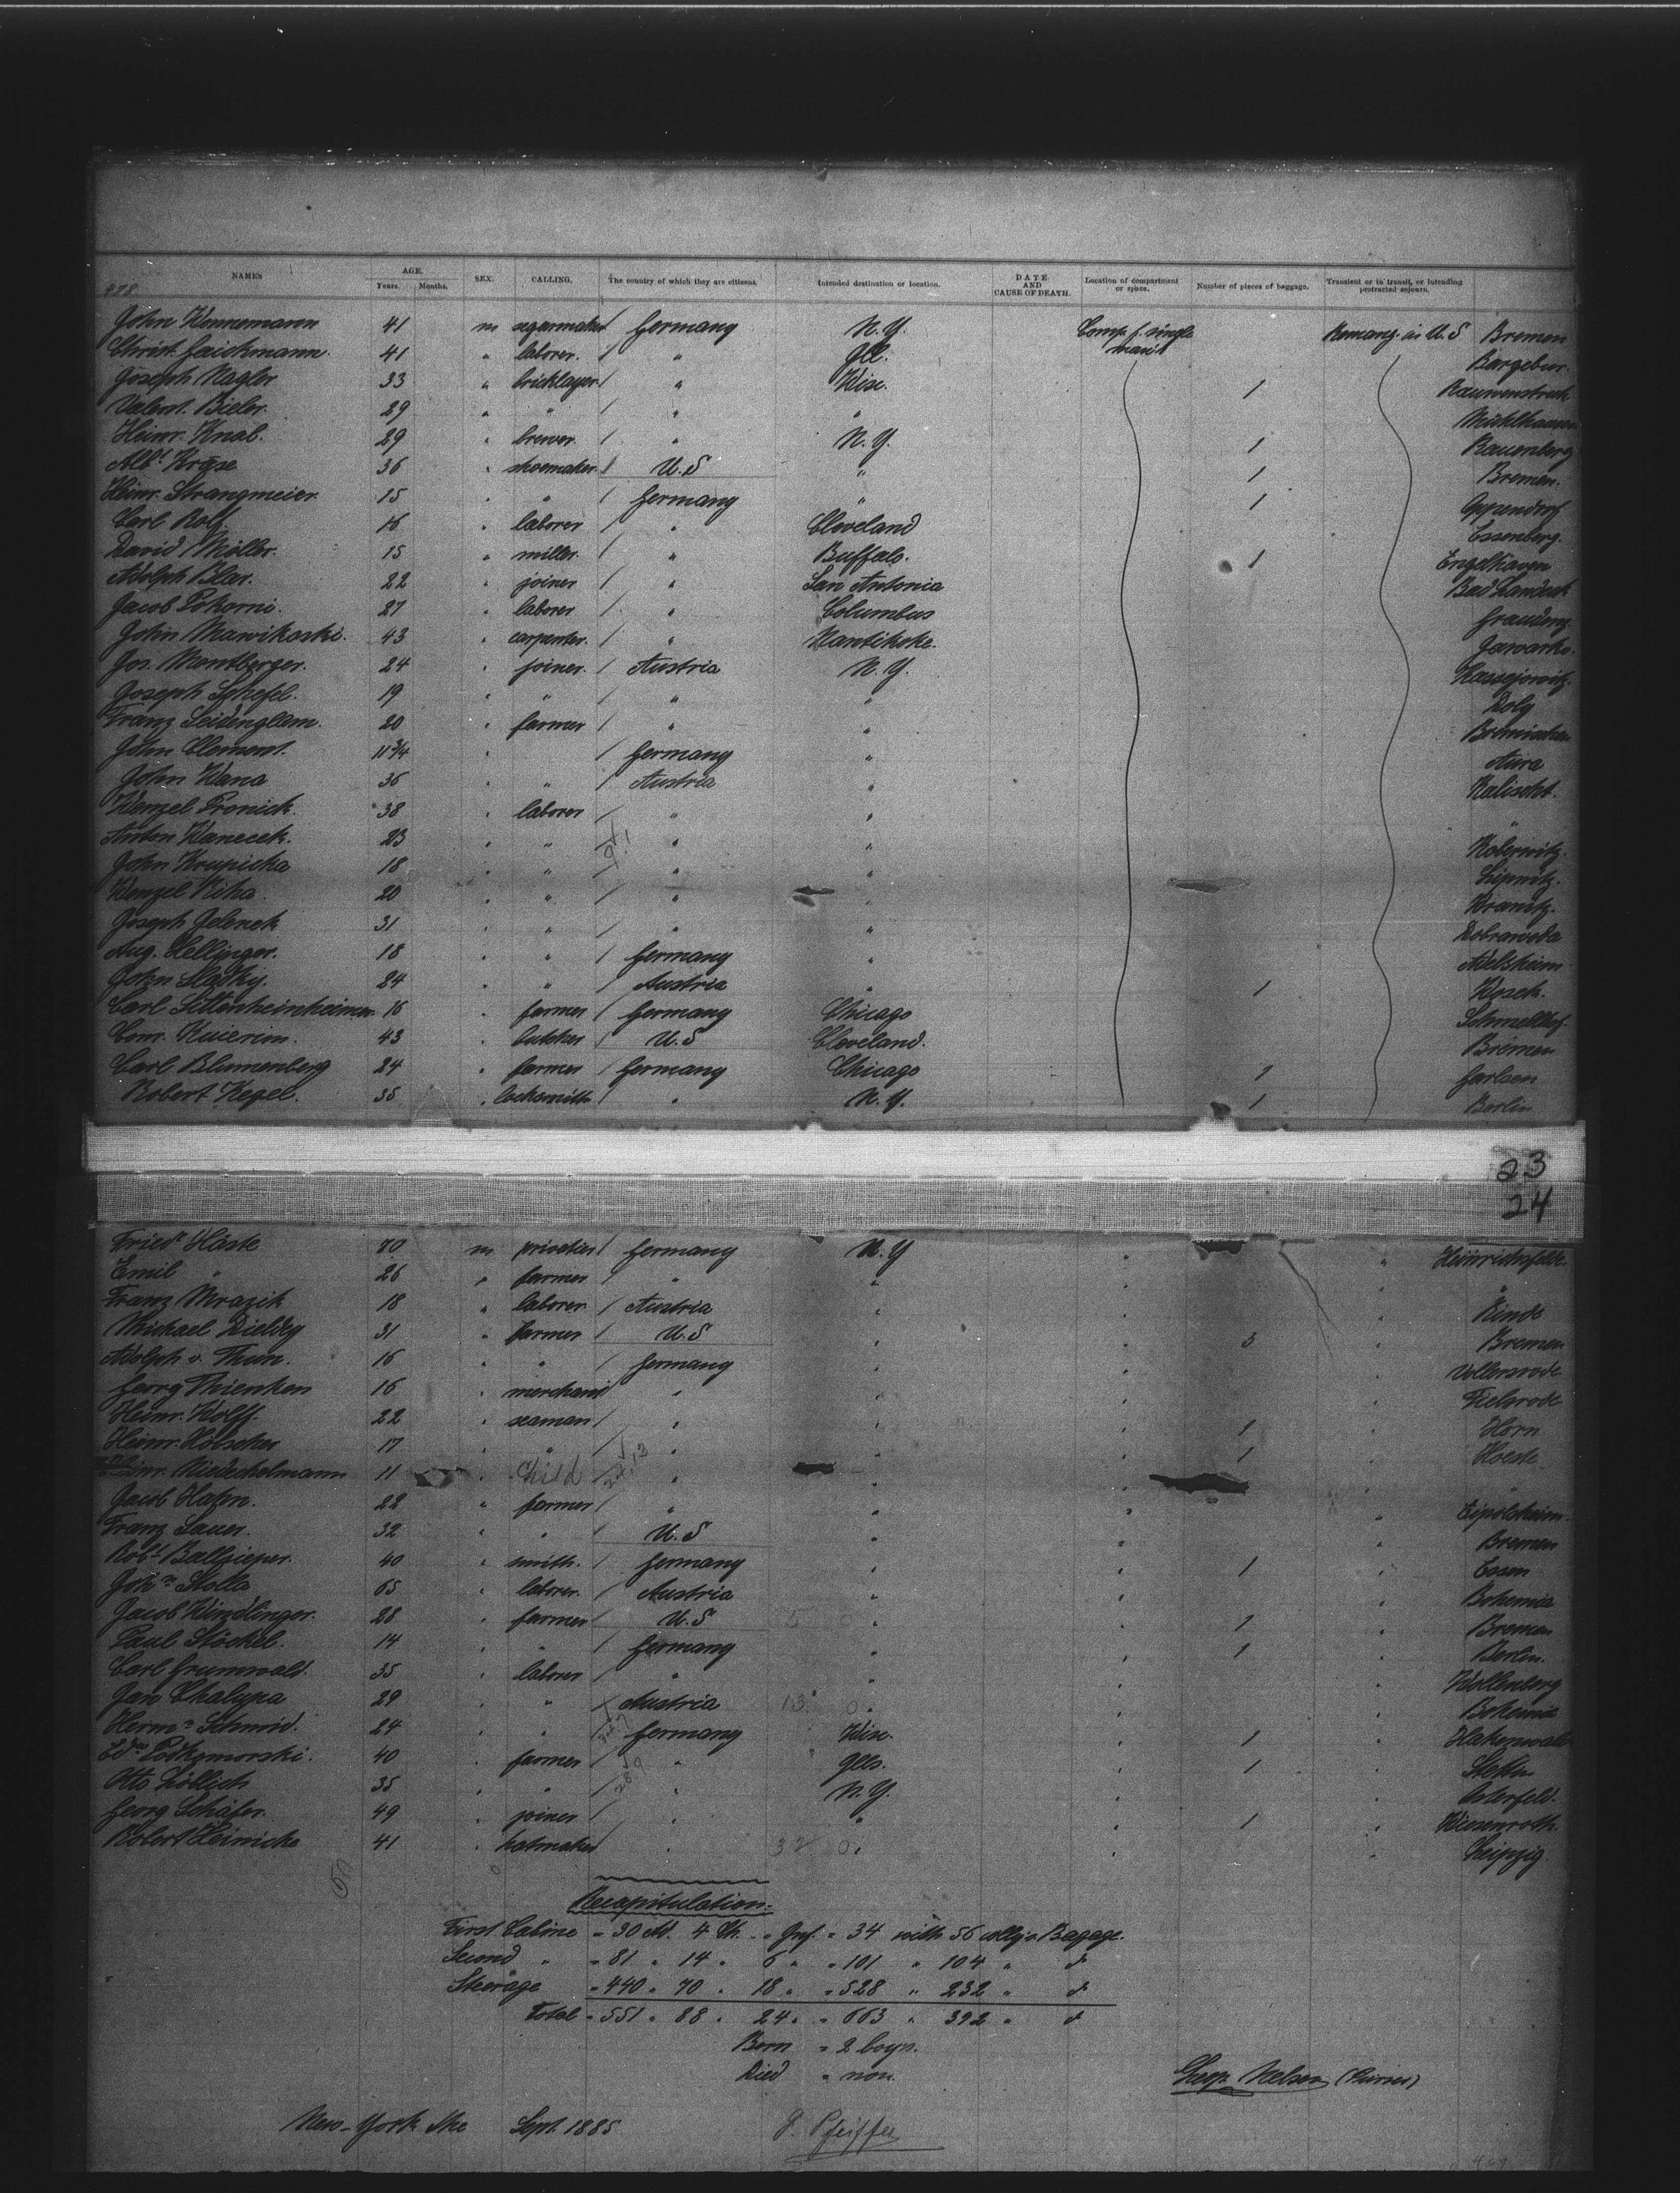 NAMES AGE. Years. Months. SEX. CALLING. The country of which they are citizens. Intended destination or location. DATE AND CAUSE OF DEATH. Location of compartment or space. Number of pieces of baggage. Transient or in transit, or intending protracted sojourn.
478.
John Wonnemann 41 m segarmaker Germany N.Y. Comp. f. single Bremen
Christ. Gaichmann. 41 " laborer. " Ill. Bargebur.
Joseph Nagler 33 " bricklayer " Wisc. 1
Valent. Bieler. 29 " " " " Mühlhausen
Heinr. Knab. 29 " brewer. " N.Y. 1 Rauenberg
Albt. Kräse 36 " shoemaker. U.S " 1 Bremen.
Heinr. Strangmeier 15 " " Germany " 1
Carl Rolf. 16 " laborer " Cleveland Essenberg.
David Möller. 15 " miller. " Buffalo. 1
Adolph Blar. 22 " joiner " San Antonia Bad Landeck
Jacob Pokorni. 27 " laborer " Columbus Graudenz.
John Mawikoski. 43 " carpenter. " Nantikoke. Jawarko.
Jos. Montberger. 24 " joiner. Austria N.Y. Kassejowitz.
Joseph Schefel. 19 " " " " Dolg
Franz Seidenglam. 20 " farmer " "
John Clement. 11 3/4 " Germany " Aura
John Wana 36 " " Austria " Kalischt.
Wenzel Pronick. 38 " laborer " " "
Anton Wanecek. 23 " " " " Kobernitz.
John Krupicka 18 " " " " Lipnitz.
Wenzel Kiha. 20 " " " " Kranitz.
Joseph Jelenek 31 " " " " Dobrawoda
Aug. Hellinger. 18 " " Germany " Adelsheim
John Slatky. 24 " " Austria " 1 Wosek.
Carl Sittenheimheimer. 16 " farmer Germany Chicago
Conr. Kuierim. 43 " butcher U.S Cleveland. Bremen
Carl Blumenberg 24 " farmer Germany Chicago 1 Garlsen
Robert Kegel. 35 " locksmith " N.Y. 1 Berlin
23
24
Friedr. Häste 70 m privatier Germany N.Y " " Heinrichsfelde.
Emil " 26 " farmer " " " " "
Franz Mrazik 18 " laborer Austria " " " Kinds
Michael Dieldey 31 " farmer U.S " " 3 " Bremen
Adolph v. Thun. 16 " " Germany " " " Vollersrode
Georg Thienken 16 " merchant " " " "
Heinr. Wolff. 22 " seaman " " " 1 " Horn
Heinr. Hölscher 17 " " " " " 1 " Hoeste.
Heinr. Niedechelmann 11 " Child " " " " "
Jacob Hahn. 22 " farmer " " " "
Franz Sauer. 32 " " U.S " " " Bremen
Robt. Ballzieper. 40 " smith. Germany " " 1 " Essen
John Stolla 65 " laborer. Austria " " " Bohemia
Jacob Windlinger. 28 " farmer U.S " " 1 " Bremen
Paul Stöckel. 14 " " Germany " " 1 " Berlin.
Carl Grunwald. 35 " laborer " " " " Wollenberg
Jan Chalupa 29 " " Austria " " " Bohemia
Hermn. Schmid. 24 " " Germany Wisc. " 1 "
Edm. Podkomorski. 40 " farmer " Ills. " 1 " Stettin
Otto Löblich 35 " " " N.Y. " " Osterfeld.
Georg Schäfer. 49 " joiner " " " 1 " Wiesenroth.
Robert Heinicke 41 " hatmaker " " " " Leipzig.
Recapitulation:
First Cabine = 30 Ad. 4 Ch. - " Inf. = 34 with 56 collys Bagage.
Second " = 81 " 14 " 6 " = 101 " 104 " d
Steerage = 440 " 70 " 18 " = 528 " 232 " d
Total = 551 " 88 " 24 " = 663 " 392 " d
Born = 2 boys.
Died = non.
New-York the Sept. 1885 J. Pfeiffer